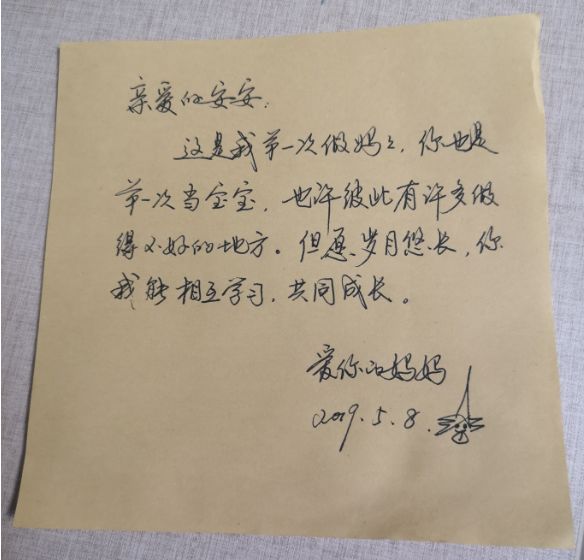 亲爱的安安:
这是我第一次做妈妈,你也是
第一次当宝宝,也许彼此有许多做
得不好的地方。但愿岁月悠长,你
我能相互学习,共同成长。
爱你的妈妈
2019.5.8.